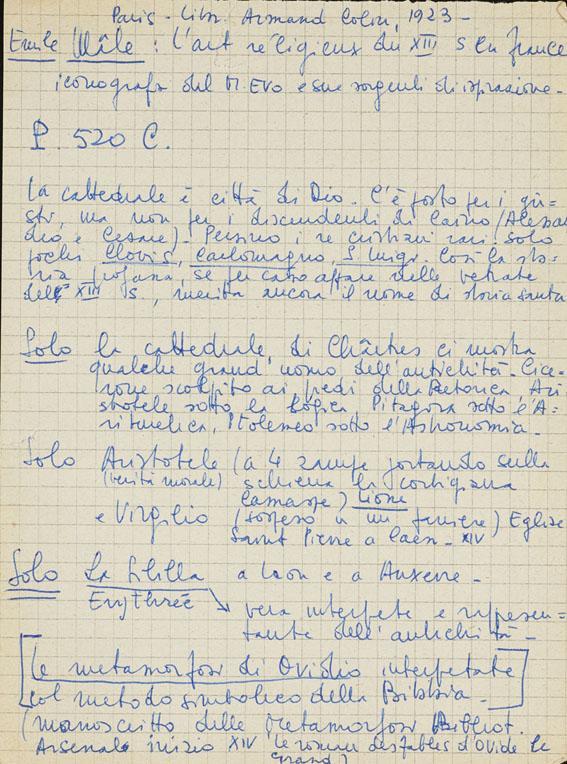 Paris - Libr. Armand Colin, 1923 -
Emile Mâle : L'art religieux du XIII s en france
iconografia del M.Evo e sue sorgenti di ispirazione -
P. 520 C.
La cattedrale è città di Dio. C'è posto per i giu-
sti, ma non per i discendenti di Caino (Alessan
dro e Cesare). Persino i re cristiani rari, solo
pochi Clovis, Carlomagno, S. Luigi. Così la sto-
ria profana, se per caso appare nelle vetrate
del XIII s, merita ancora il nome di storia santa
Solo la cattedrale di Châtres ci mostra
qualche grand'uomo dell'antichità. Cice-
rone scolpito ai piedi della Retorica, Ari
stotele sotto la Logica, Pitagora sotto l'A-
ritmetica, Ptolemeo sotto l'Astronomia -
Solo Aristotele (a 4 zampe portando sulla
(verità morale) schiena la cortigiana
Campaspe) Lione
e Virgilio (sospeso a un paniere) Eglise
Saint Pierre a Caen - XIV
Solo La Sibilla a Laon e a Auxerre -
Erythrée vera interprete e rappresen=
tante dell'antichità -
[Le metamorfosi di Ovidio interpretate]
col metodo simbolico della Bibbia -
(manoscritto delle Metamorfosi Bibliot.
Arsenale inizio XIV le roman des fables d'Ovide le
Grand)